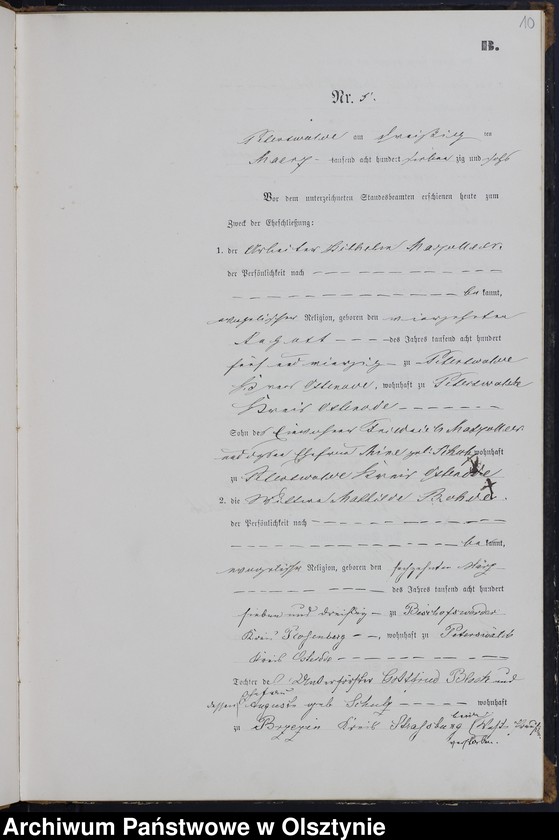 10
B.
Nr. 5.
Peterswalde am dreißig ten
Maerz tausend acht hundert sieben zig und sechs
Vor dem unterzeichneten Standesbeamten erschienen heute zum
Zweck der Eheschließung:
1. der Arbeiter Wilhelm
der Persönlichkeit nach
be kannt,
evangelischer Religion, geboren den vierzehnten
August des Jahres tausend acht hundert
fünf und vierzig zu Peterswalde
Kreis Osterode, wohnhaft zu Peterswalde
Kreis Osterode
Sohn des Einwohner Friedrich
und dessen Ehefrau Mine geb. wohnhaft
zu Peterswalde Kreis Osterode
2. die Wittwe Mathilde
der Persönlichkeit nach
be kannt,
evangelischer Religion, geboren den sechzehnten März
des Jahres tausend acht hundert
sieben und dreißig zu Bischofswerder
Kreis Rosenberg, wohnhaft zu Peterswalde
Kreis Osterode
Tochter des Unterförster Gottfried Block und
dessen Ehefrau Auguste geb. Schulz wohnhaft
zu Kreis Strasburg
verstorben.
Archiwum Państwowe w Olsztynie